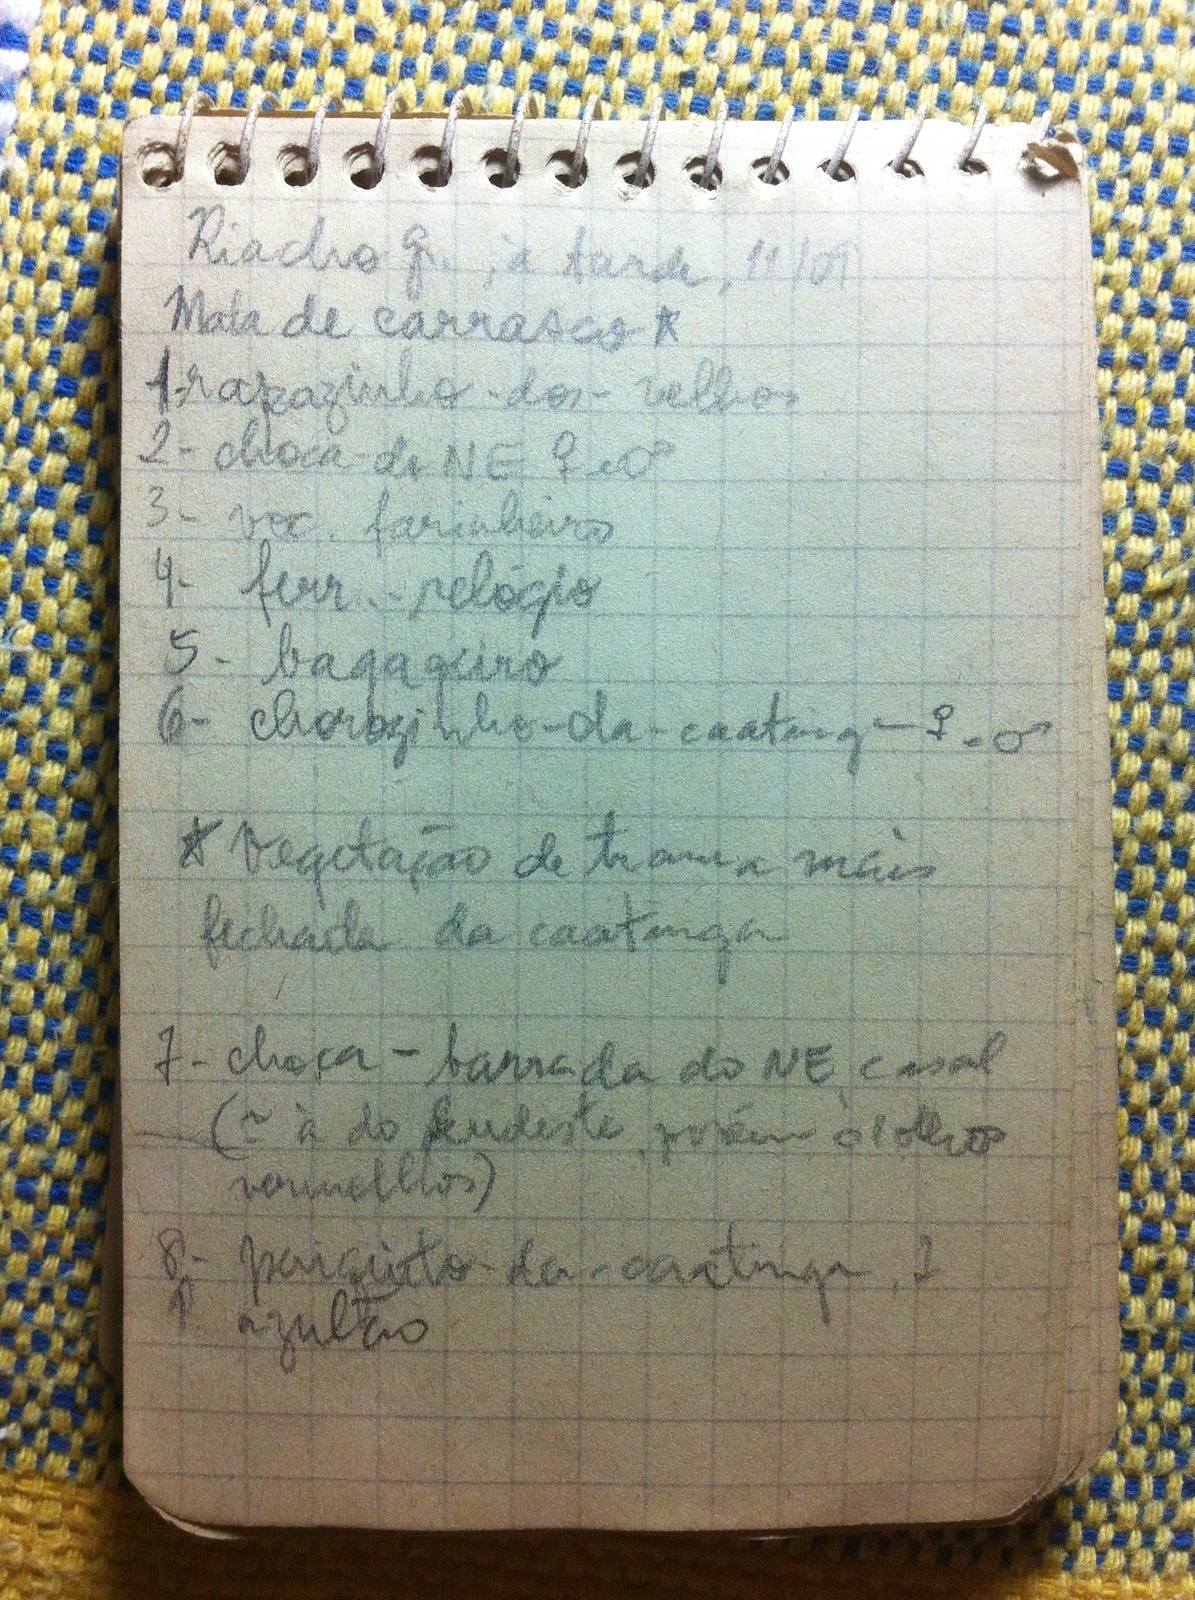 Riacho gr., à tarde, 11/09
Mata de carrasco *
1-rapazinho-dos-velhos
2- choca-do NE ♀ e ♂
3- voc. farinheiro
4- ferr.-relógio
5- bagageiro
6- chorozinho-da-caatinga - ♀ - ♂
* Vegetação de trama mais
fechada da caatinga
7- choca-barrada do NE casal
(≃ à do Sudeste, porém olhos
vermelhos)
8- periquito-da-caatinga,
azulão